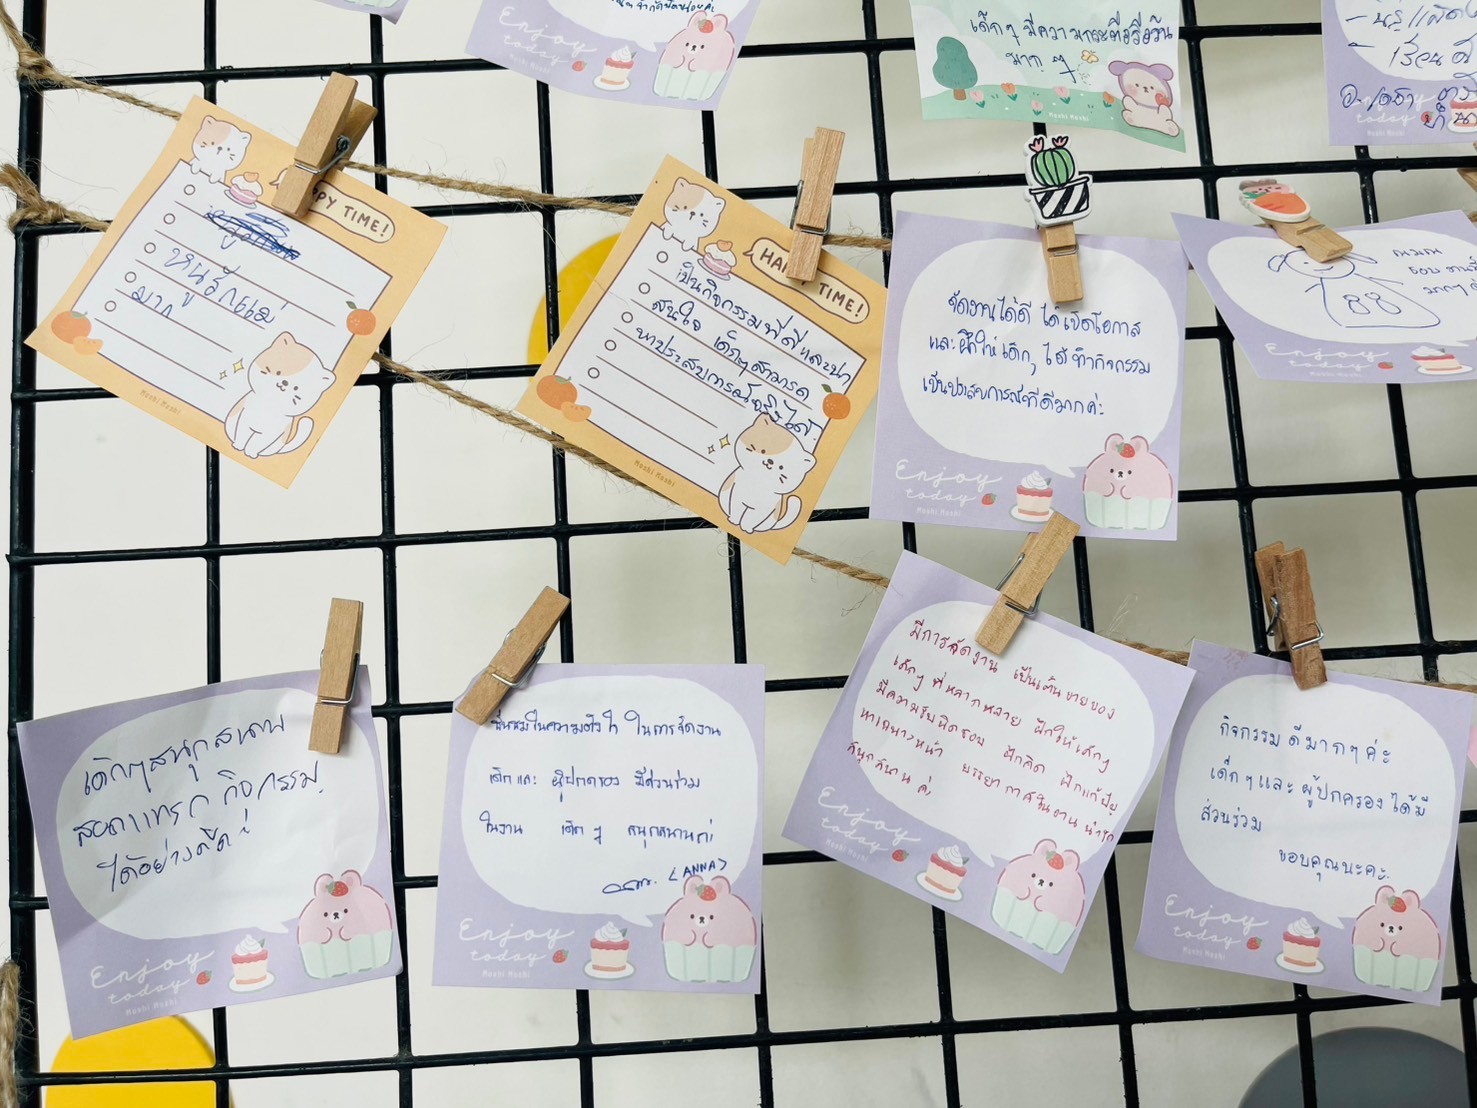 Enjoy
today
เด็กๆ มีความกระตือรือร้น
มาก ๆ
Mochi Mochi
today
HAPPY TIME!
หนูรักแม่
มาก
Mochi Mochi
HAPPY TIME!
เป็นกิจกรรมที่ดีและน่า
สนใจ เด็กๆสามารถ
หาประสบการณ์จริงได้.
Mochi Mochi
จัดงานได้ดี ได้เปิดโอกาส
และฝึกให้เด็กๆ ได้ทำกิจกรรม
เป็นประสบการณ์ที่ดีมากค่ะ
Enjoy
today
Mochi Mochi
BB
Enjoy
today
เด็กๆสนุกสนาน
สอดแทรกกิจกรรม
ได้อย่างดี
Enjoy
today
Mochi Mochi
ชื่นชมในความตั้งใจ ในการจัดงาน
เด็กและ ผู้ปกครอง มีส่วนร่วม
ในงาน เด็ก ๆ สนุกสนานค่ะ
(ANNA)
Enjoy
today
Mochi Mochi
มีการจัดงาน เป็นเต็นขายของ
เด็กๆ ที่หลากหลาย ฝึกให้เด็กๆ
มีความรับผิดชอบ ฝึกคิด ฝึกแก้ปัญ
หาเฉพาะหน้า บรรยากาศในงาน น่ารัก
สนุกสนาน ค่ะ
Enjoy
today
กิจกรรม ดีมากๆค่ะ
เด็กๆและ ผู้ปกครองได้มี
ส่วนร่วม
ขอบคุณนะคะ.
Enjoy
today
Mochi Mochi